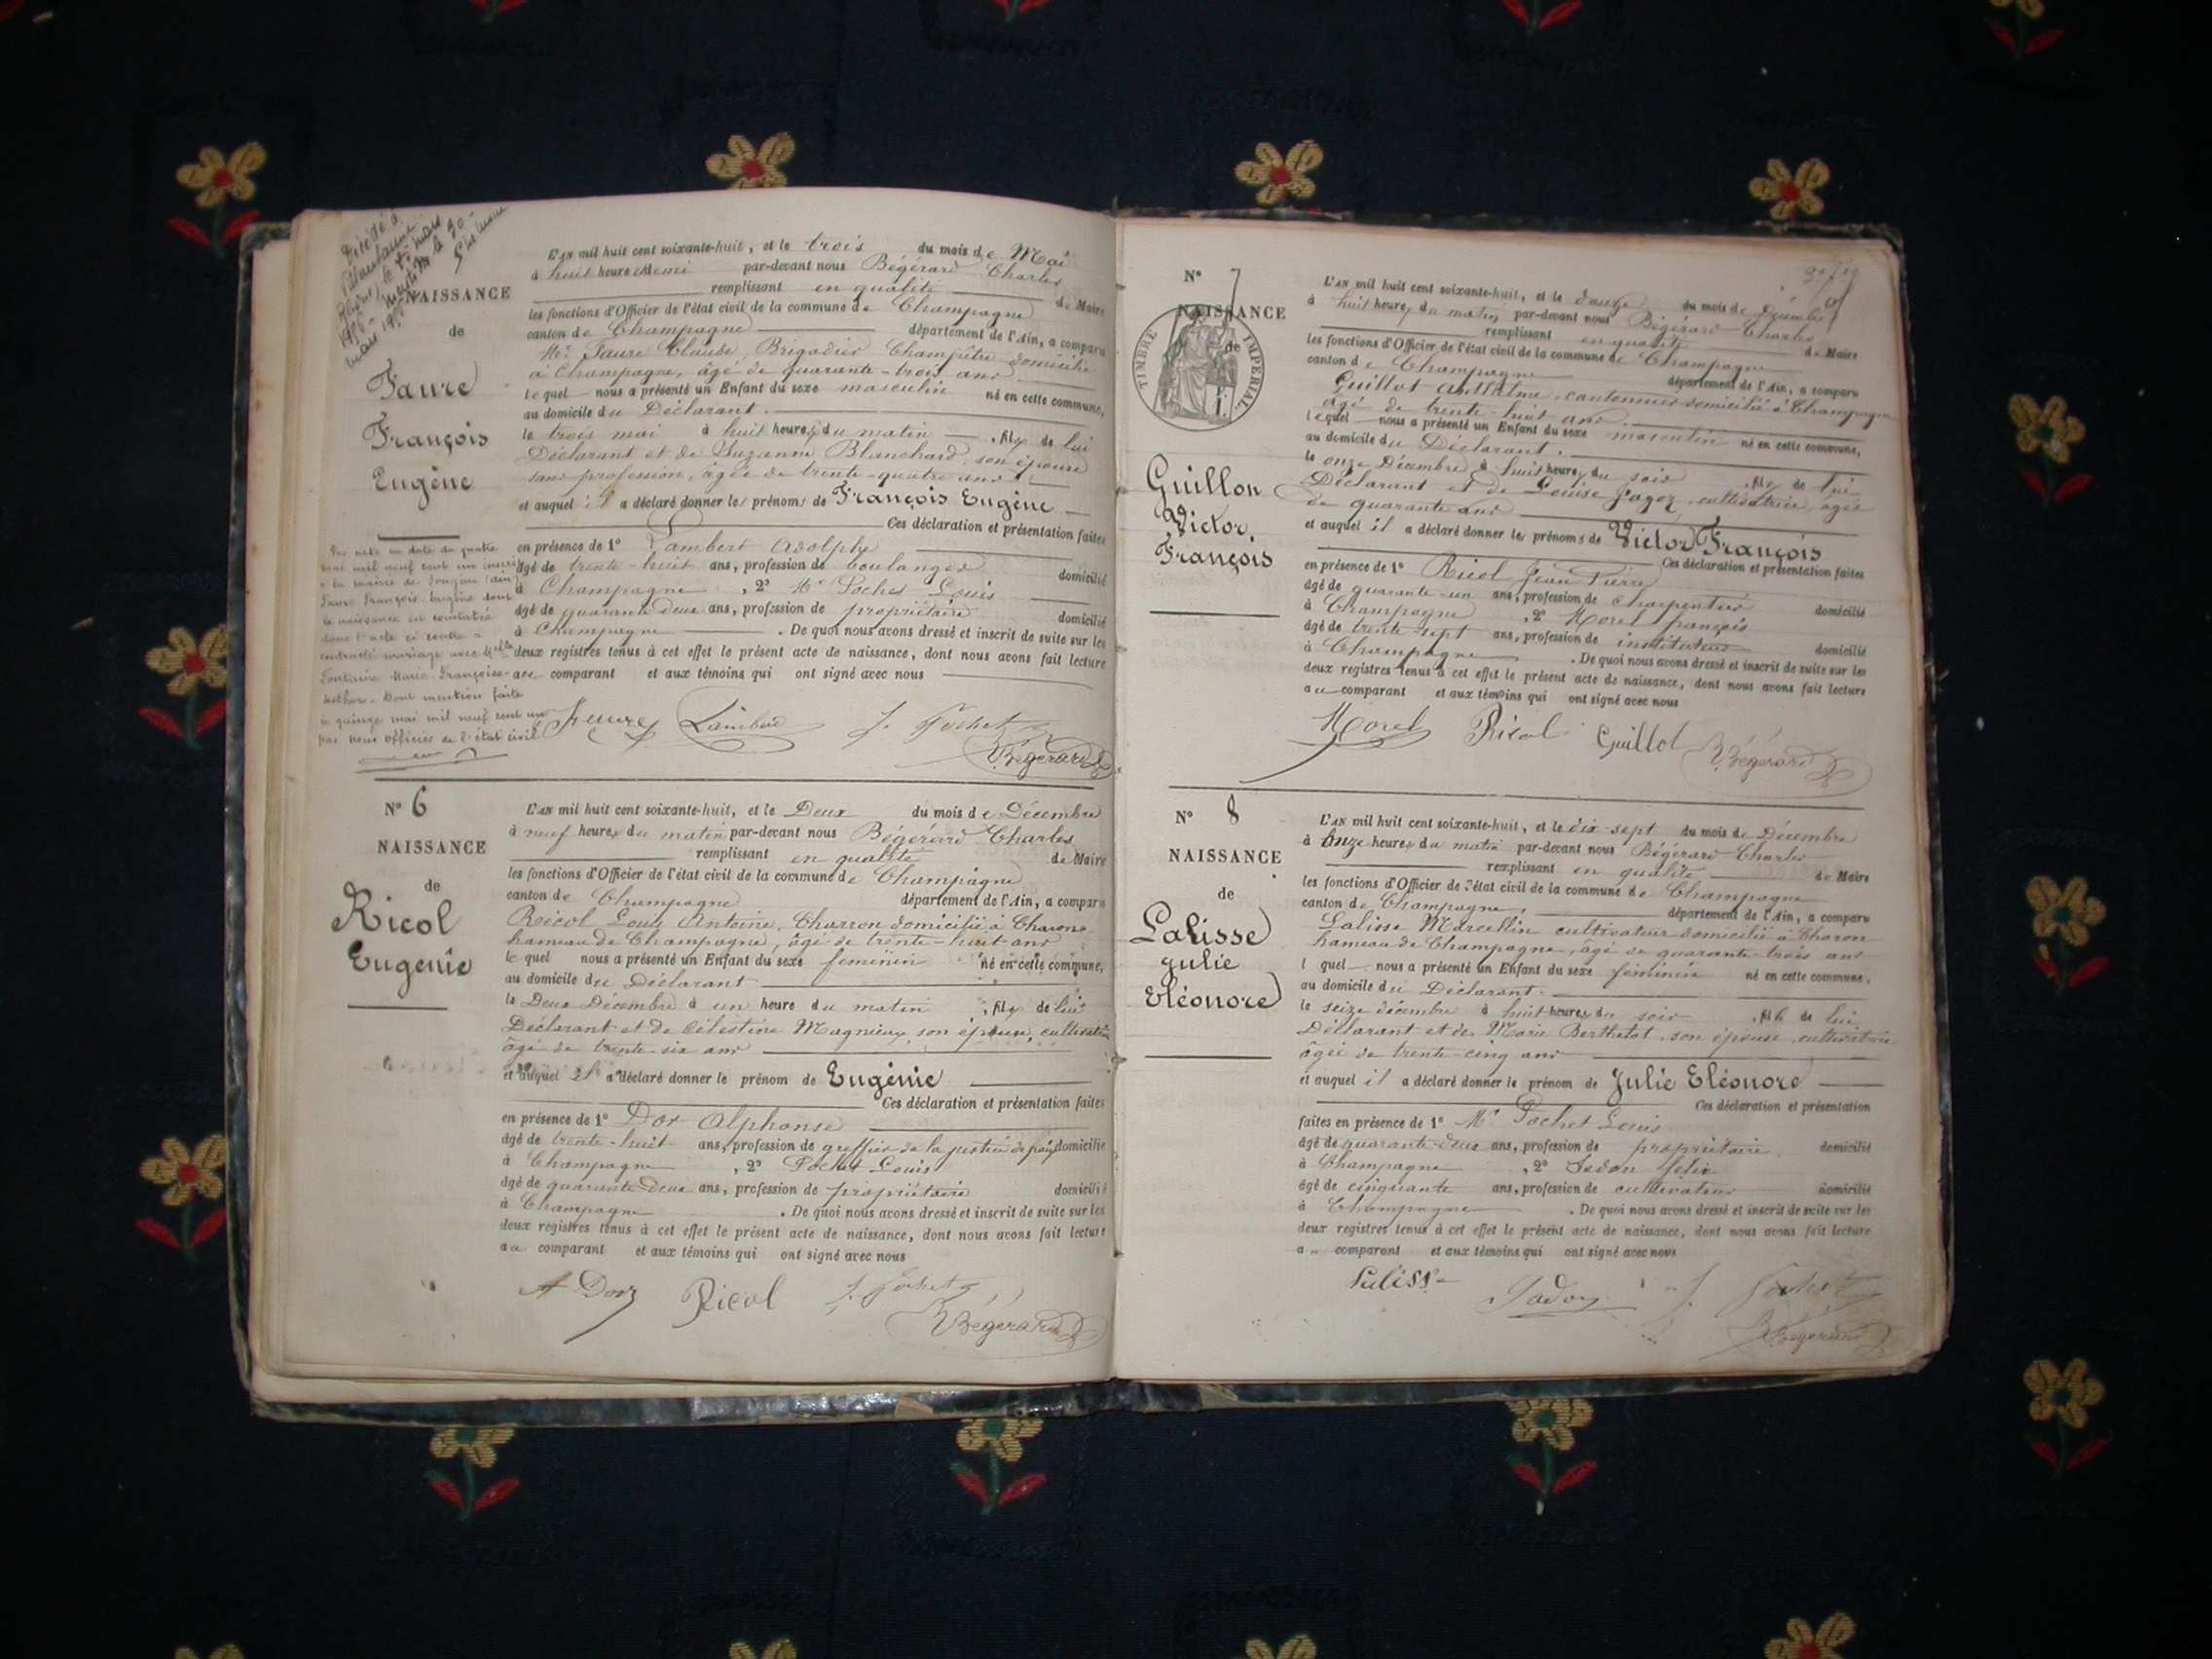 NAISSANCE
de
Faure
François
Eugène
L'AN mil huit cent soixante-huit, et le trois du mois de Mai
à huit heures et demi par-devant nous Bégérard Charles
remplissant en qualité de Maire
les fonctions d'Officier de l'état civil de la commune de Champagne
canton de Champagne département de l'Ain, a comparu
Mr Faure Claude, Brigadier Champêtre domicilié
à Champagne, âgé de quarante-trois ans
lequel nous a présenté un Enfant du sexe masculin né en cette commune,
au domicile du Déclarant.
le trois mai à huit heures du matin, fils de lui
Déclarant et de Suzanne Blanchard, son épouse
sans profession, âgée de trente-quatre ans
et auquel il a déclaré donner les prénoms de François Eugène
Ces déclaration et présentation faites
en présence de 1° Lambert Adolphe
âgé de trente-huit ans, profession de boulanger domicilié
à Champagne, 2° Mr Pochet Louis
âgé de quarante deux ans, profession de propriétaire domicilié
à Champagne. De quoi nous avons dressé et inscrit de suite sur les
deux registres tenus à cet effet le présent acte de naissance, dont nous avons fait lecture
au comparant et aux témoins qui ont signé avec nous
Lambert Pochet
Bégérard
Par acte en date du quatre
mai mil neuf cent un inscrit
à la mairie de Songieu (Ain)
Faure François-Eugène dont
la naissance est constatée
dans l'acte ci contre a
contracté mariage avec Melle
Fontaine Marie-Françoise
Dont mention faite
le quinze mai mil neuf cent un
par nous officier de l'état civil
N° 6
NAISSANCE
de
Ricol
Eugenie
L'AN mil huit cent soixante-huit, et le Deux du mois de Décembre
à neuf heures du matin par-devant nous Bégérard Charles
remplissant en qualité de Maire
les fonctions d'Officier de l'état civil de la commune de Champagne
canton de Champagne département de l'Ain, a comparu
Ricol Louis Antoine, Charron domicilié à Charon
hameau de Champagne, âgé de trente-huit ans
lequel nous a présenté un Enfant du sexe féminin né en cette commune,
au domicile du Déclarant
le Deux Décembre à un heure du matin, fille de lui
Déclarant et de Célestine Magnieux, son épouse, cultivatrice
âgé de trente-six ans
et auquel il a déclaré donner le prénom de Eugénie
Ces déclaration et présentation faites
en présence de 1° Dor Alphonse
âgé de trente-huit ans, profession de greffier de la justice de paix domicilié
à Champagne, 2° Pochet Louis
âgé de quarante Deux ans, profession de propriétaire domicilié
à Champagne. De quoi nous avons dressé et inscrit de suite sur les
deux registres tenus à cet effet le présent acte de naissance, dont nous avons fait lecture
au comparant et aux témoins qui ont signé avec nous
A Dor Ricol Pochet
Bégérard
N° 7
NAISSANCE
de
TIMBRE IMPERIAL
Guillon
Victor
François
L'AN mil huit cent soixante-huit, et le douze du mois de Décembre
à huit heures du matin par-devant nous Bégérard Charles
remplissant en qualité de Maire
les fonctions d'Officier de l'état civil de la commune de Champagne
canton de Champagne département de l'Ain, a comparu
Guillot Anthelme, cantonnier domicilié à Champagne
âgé de trente-huit ans.
lequel nous a présenté un Enfant du sexe masculin né en cette commune,
au domicile du Déclarant.
le onze Décembre à huit heures du soir, fils de lui
Déclarant et de Louise, cultivatrice, âgée
de quarante ans
et auquel il a déclaré donner les prénoms de Victor François
Ces déclaration et présentation faites
en présence de 1° Ricol Jean Pierre
âgé de quarante-un ans, profession de charpentier domicilié
à Champagne, 2° Morel françois
âgé de trente-sept ans, profession de instituteur domicilié
à Champagne. De quoi nous avons dressé et inscrit de suite sur les
deux registres tenus à cet effet le présent acte de naissance, dont nous avons fait lecture
au comparant et aux témoins qui ont signé avec nous
Morel Ricol Guillot Bégérard
N° 8
NAISSANCE
de
Lalisse
Julie
Eléonore
L'AN mil huit cent soixante-huit, et le dix-sept du mois de Décembre
à onze heures du matin par-devant nous Bégérard Charles
remplissant en qualité de Maire
les fonctions d'Officier de l'état civil de la commune de Champagne
canton de Champagne, département de l'Ain, a comparu
Lalisse Marcellin cultivateur domicilié à Charon
hameau de Champagne, âgé de quarante-trois ans
lequel nous a présenté un Enfant du sexe féminin né en cette commune,
au domicile du Déclarant.
le seize décembre à huit heures du soir, fille de lui
Déclarant et de Marie Berthelot, son épouse, cultivatrice
âgée de trente-cinq ans
et auquel il a déclaré donner le prénom de Julie Eléonore
Ces déclaration et présentation
faites en présence de 1° Mr Pochet Louis
âgé de quarante-deux ans, profession de propriétaire domicilié
à Champagne, 2° Jadon félix
âgé de cinquante ans, profession de cultivateur domicilié
à Champagne. De quoi nous avons dressé et inscrit de suite sur les
deux registres tenus à cet effet le présent acte de naissance, dont nous avons fait lecture
au comparant et aux témoins qui ont signé avec nous
Jadon Pochet
Bégérard